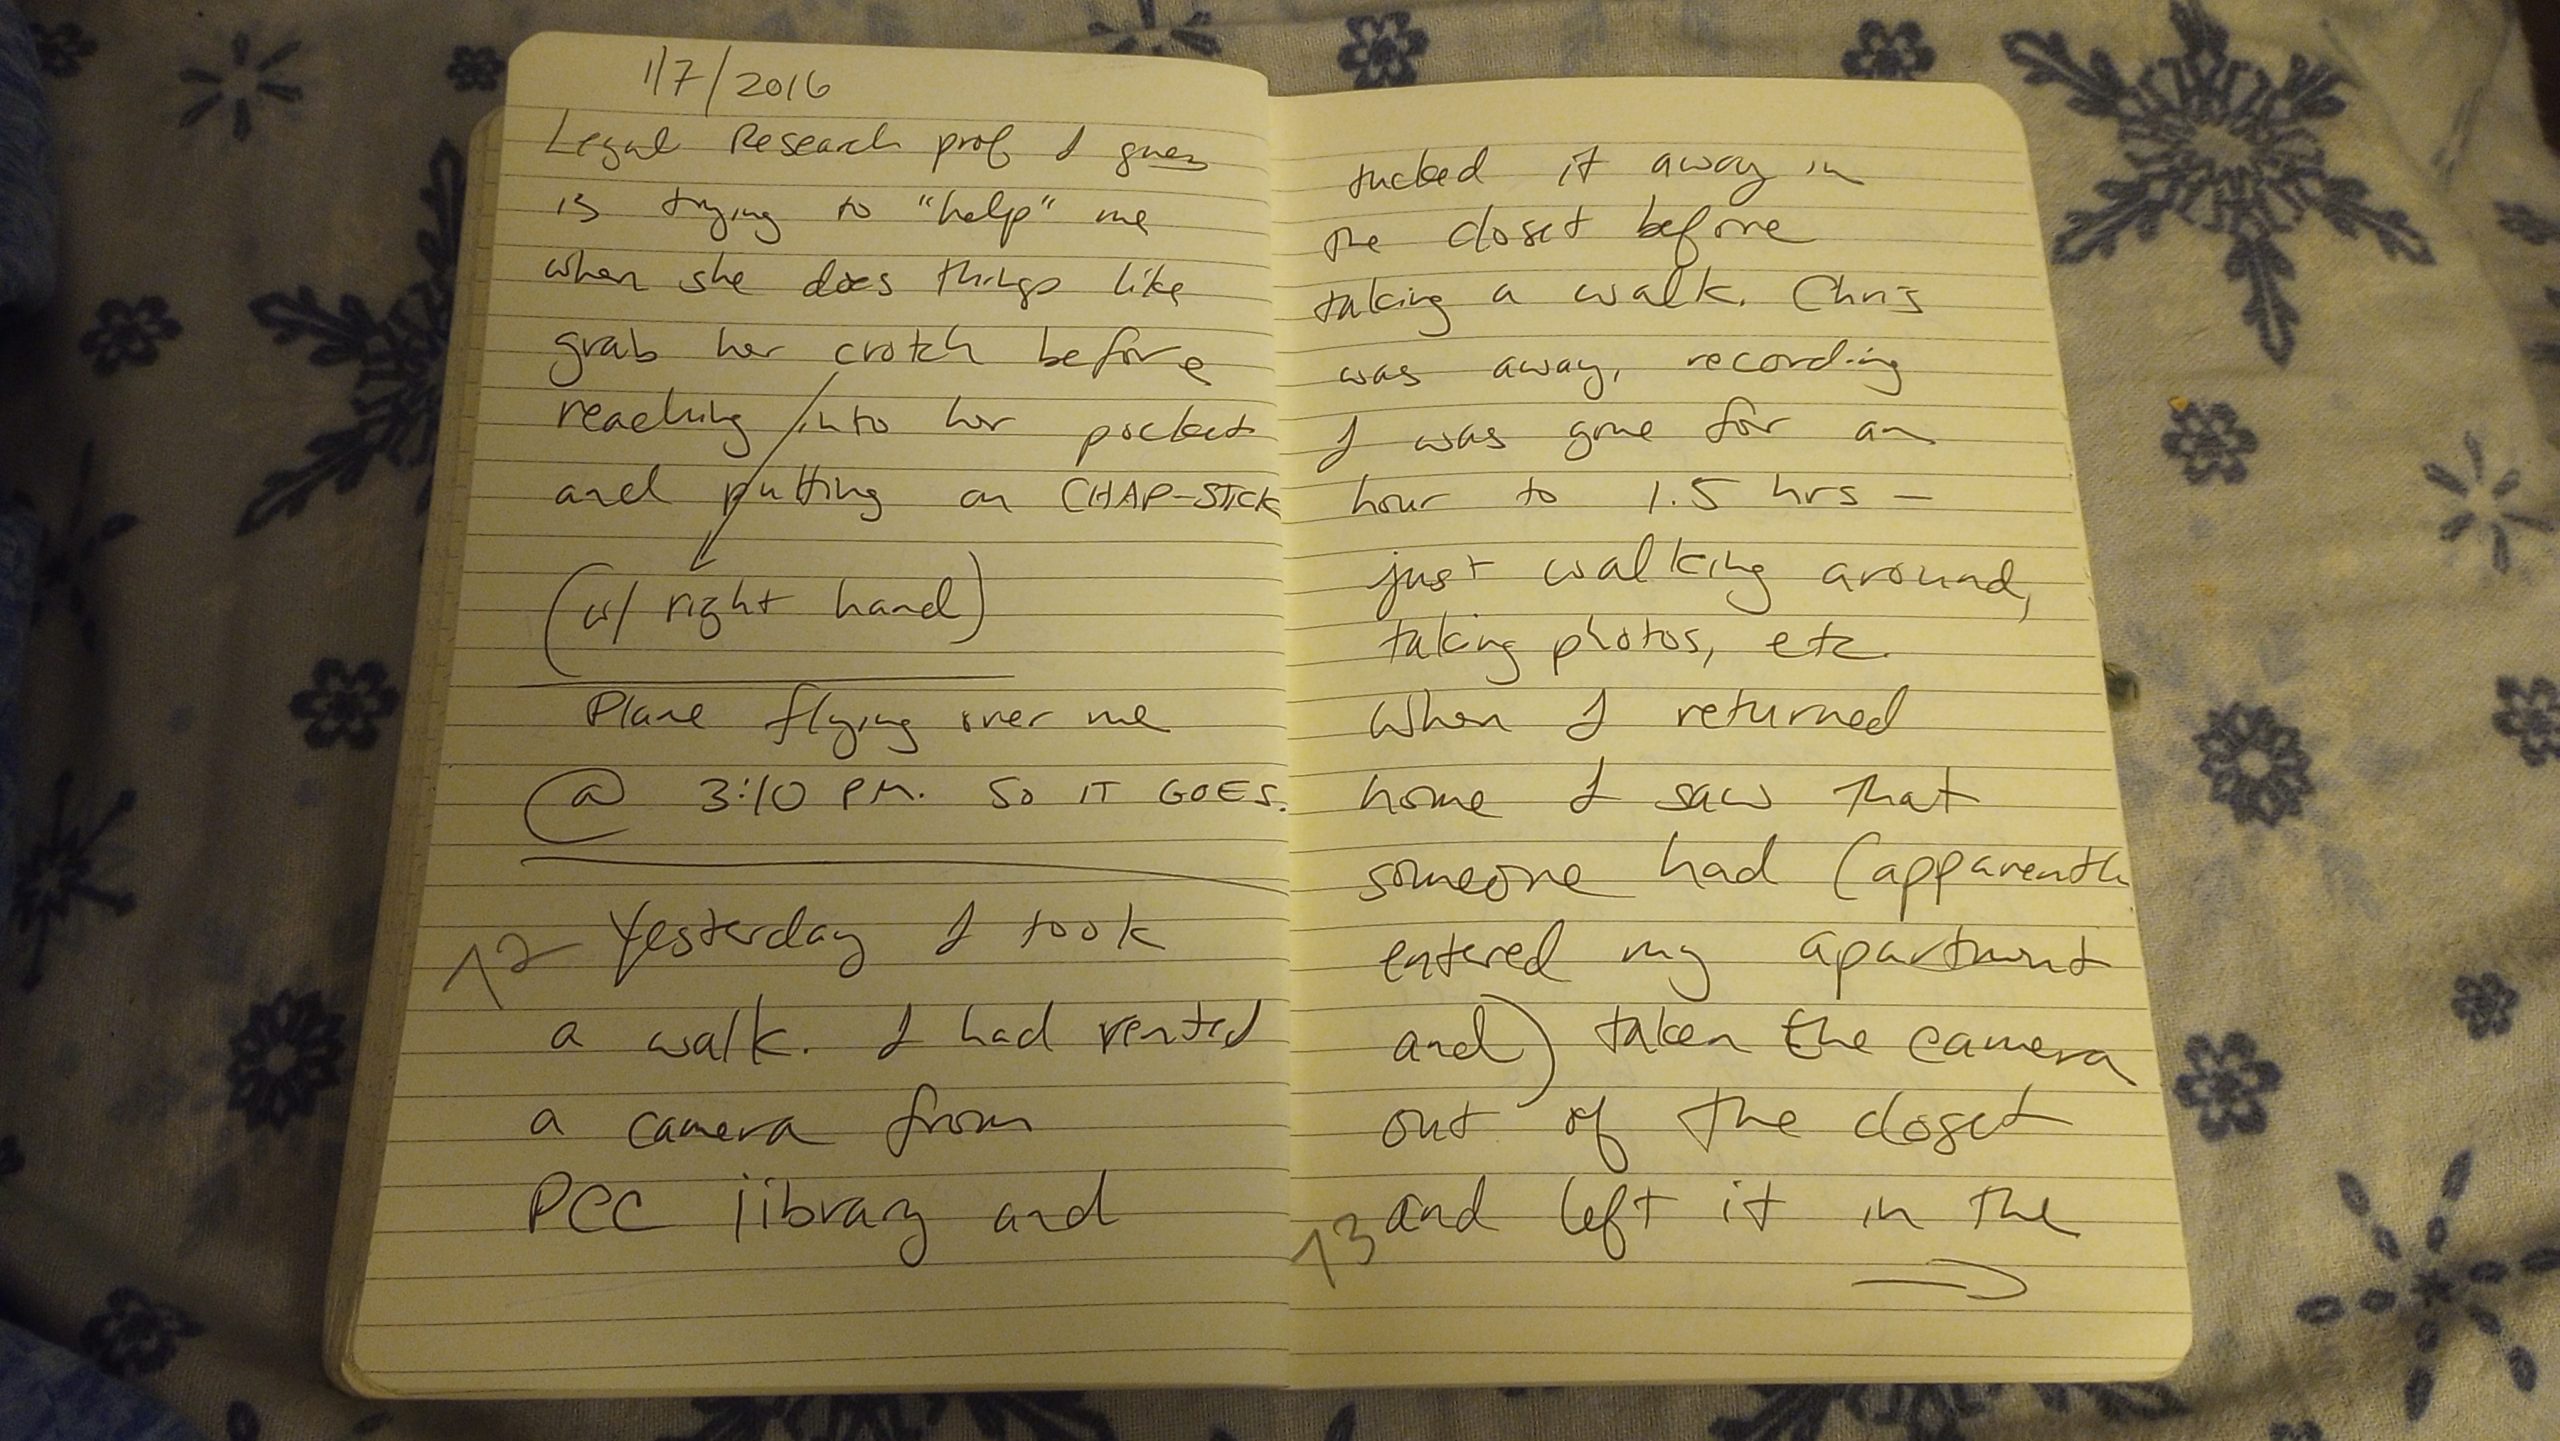 1/7/2016
Legal Research prof I guess
is trying to "help" me
when she does things like
grab her crotch before
reaching into her pocket
and putting on CHAP-STICK
(w/ right hand)
Plane flying over me
@ 3:10 PM. SO IT GOES.
12 Yesterday I took
a walk. I had rented
a camera from
PCC library and
tucked it away in
the closet before
taking a walk. Chris
was away, recording
I was gone for an
hour to 1.5 hrs —
just walking around,
taking photos, etc.
When I returned
home I saw that
someone had (apparently
entered my apartment
and) taken the camera
out of the closet
13 and left it in the